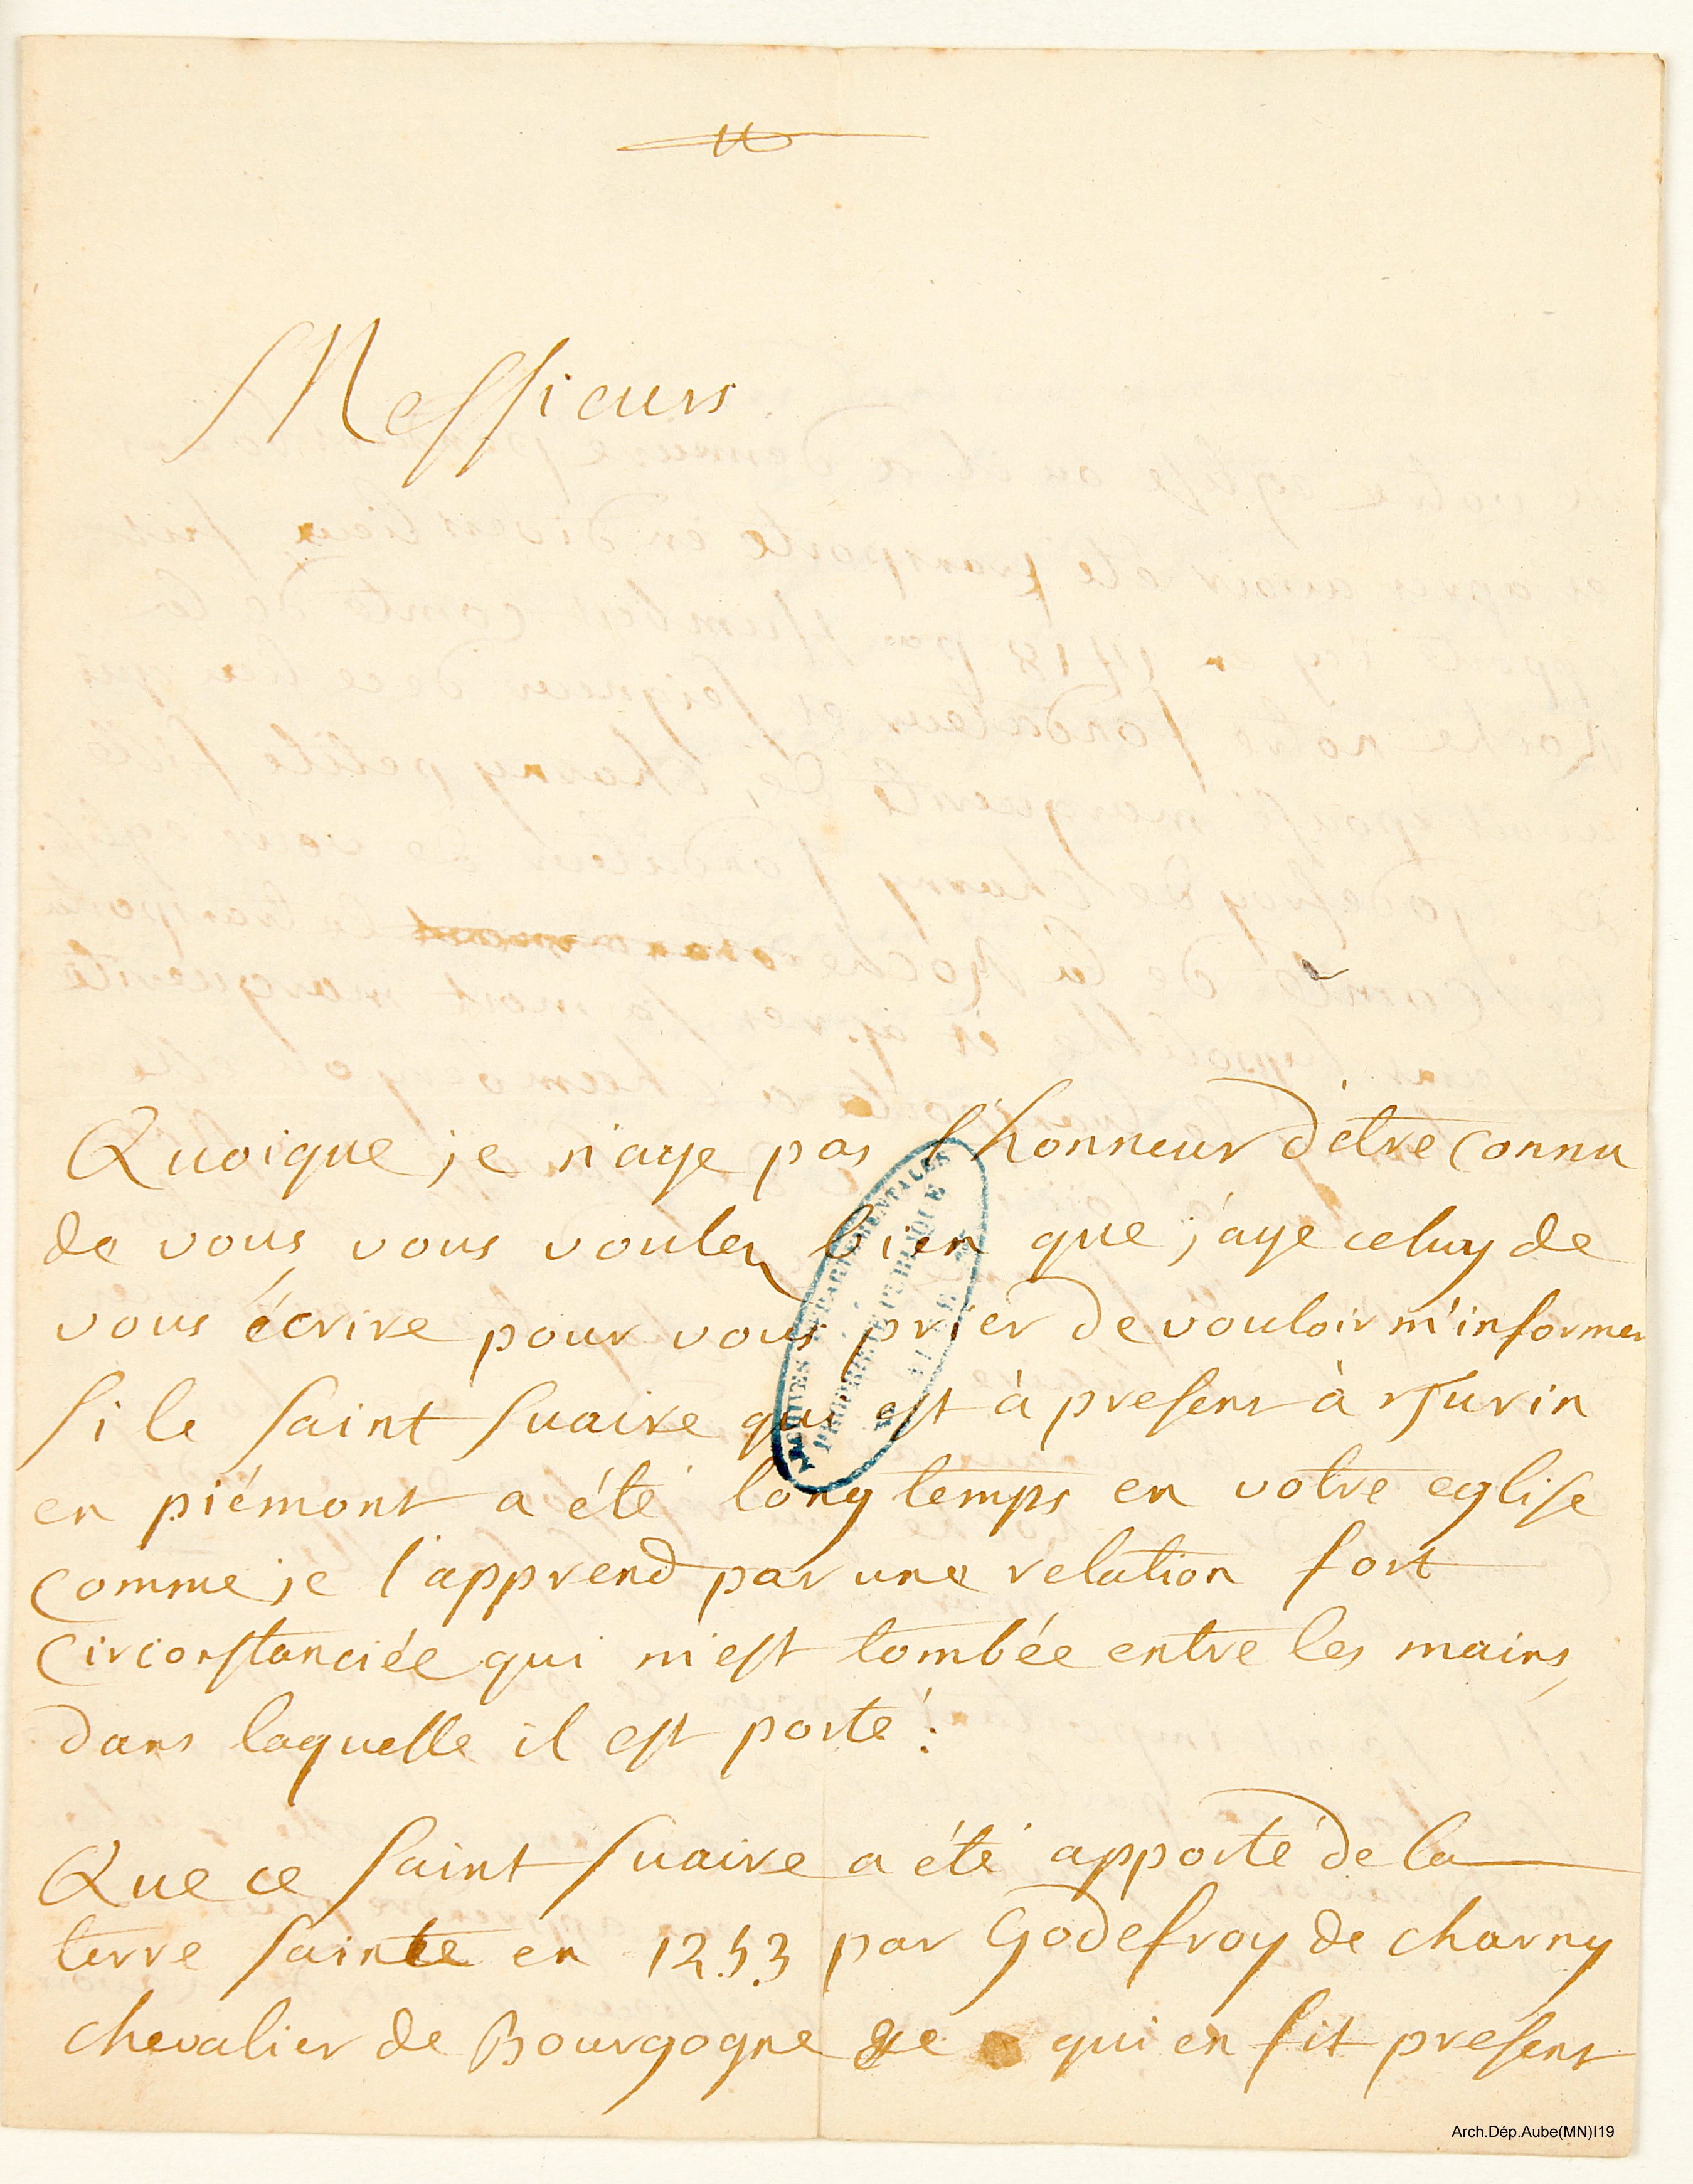 Messieurs
Quoique je n'aye pas l'honneur d'être connu
de vous, vous voulez bien que j'aye celuy de
vous écrire pour vous prier de vouloir m'informer
si le saint suaire qui est à present à Turin
en piémont a été long temps en votre eglise
comme je l'apprend par une relation fort
circonstanciée qui m'est tombée entre les mains,
dans laquelle il est porté :
Que ce saint suaire a été apporté de la
terre sainte en 1253 par Godefroy de charny
chevalier de Bourgogne &c qui en fit present
ARCHIVES DÉPARTEMENTALES
PROPRIÉTÉ PUBLIQUE
AUBE
Arch.Dép.Aube(MN)I19